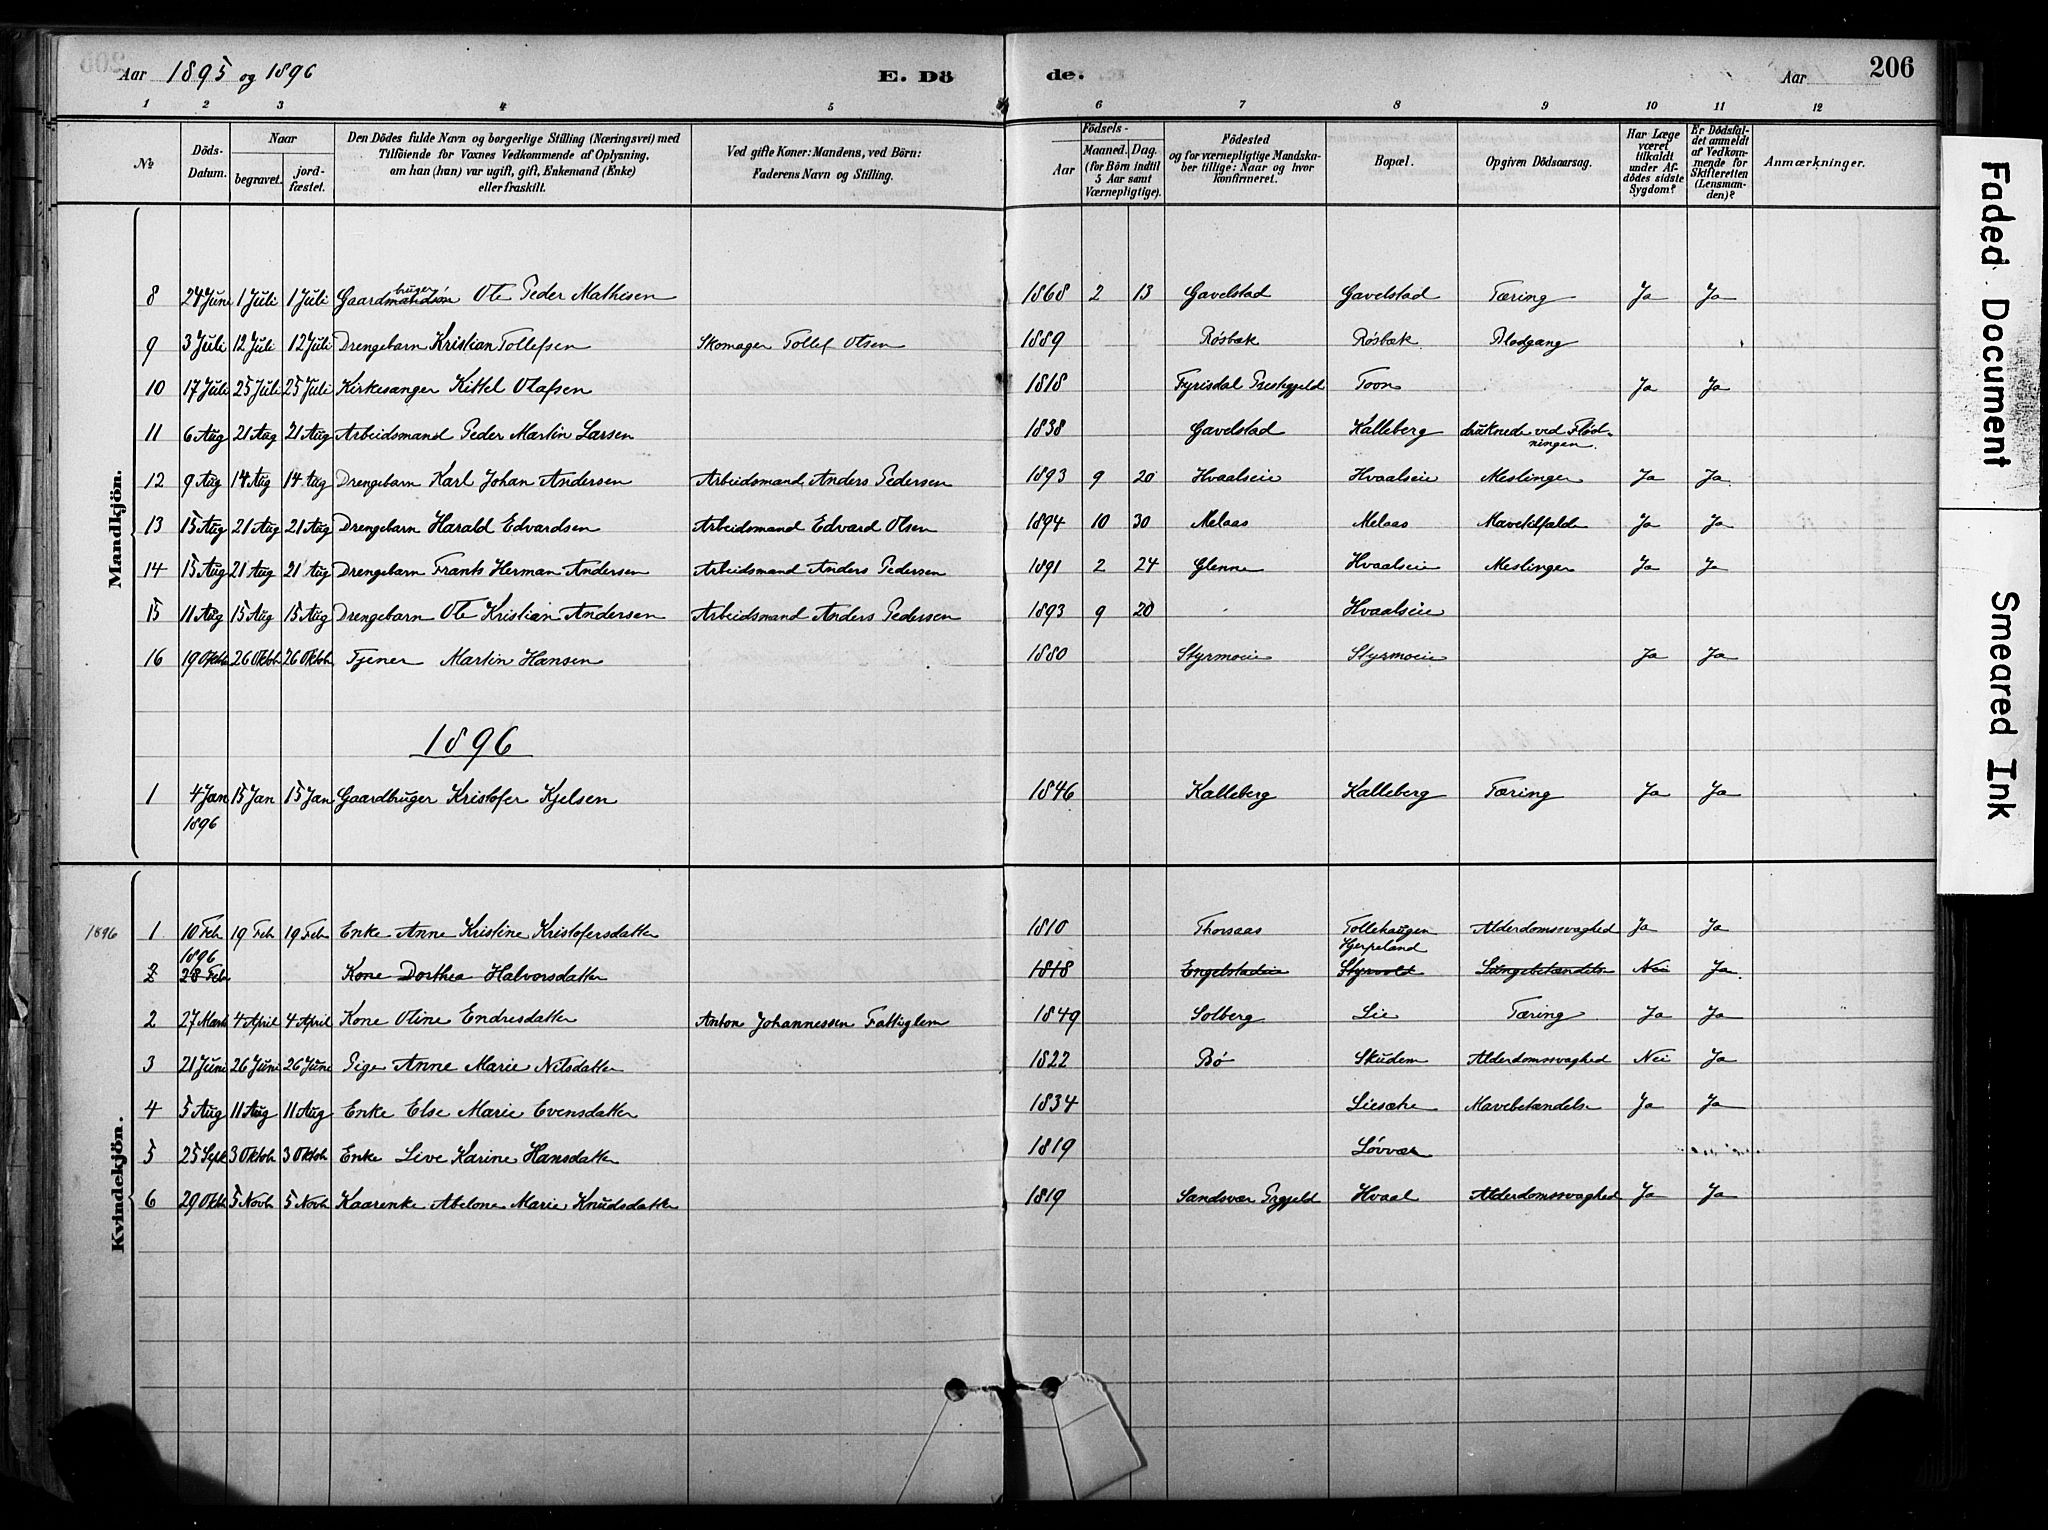 Aar 1895 og 1896 E. Dö de. Aar 206
1 2 3 4 5 6 7 8 9 10 11 12
No. Döds-Datum. Naar begravet. jord-fæstet. Den Dödes fulde Navn og borgerlige Stilling (Næringsvei) med Tilföiende for Voxnes Vedkommende af Oplysning, om han (hun) var ugift, gift, Enkemand (Enke) eller fraskilt. Ved gifte Koner: Mandens, ved Börn: Faderens Navn og Stilling. Aar Födsels- Maaned. Dag. (for Börn indtil 5 Aar samt Værnepligtige). Födested og for værnepligtige Mandskaber tillige: Naar og hvor konfirmeret. Bopæl. Opgiven Dödsaarsag. Har Læge været tilkaldt under Afdödes sidste Sygdom? Er Dödsfaldet anmeldt af Vedkommende for Skifteretten (Lensmanden)? Anmærkninger.
Mandkjön.
8 24 Juni 1 Juli 1 Juli Gaardbruger Ole Peder Mathisen 1868 2 13 Gavelstad Gavelstad Tæring Ja Ja
9 3 Juli 12 Juli 12 Juli Drengebarn Kristian Tollefsen Skomager Tollef Olsen 1889 Røsbæk Røsbæk Blodgang
10 17 Juli 25 Juli 25 Juli Kirkesanger Kittel Olafsen 1818 Fyrisdal Prestegjeld Toon Ja Ja
11 6 Aug 21 Aug 21 Aug Arbeidsmand Peder Martin Larsen 1838 Gavelstad Kalleberg druknede ved Flødningen
12 9 Aug 14 Aug 14 Aug Drengebarn Karl Johan Andersen Arbeidsmand Anders Pedersen 1893 9 20 Hvaalseie Hvaalseie Meslinger Ja Ja
13 15 Aug 21 Aug 21 Aug Drengebarn Harald Edvardsen Arbeidsmand Edvard Olsen 1894 10 30 Melaas Melaas Mavetilfælde Ja Ja
14 15 Aug 21 Aug 21 Aug Drengebarn Frants Herman Andersen Arbeidsmand Anders Pedersen 1891 2 24 Glenne Hvaalseie Meslinger Ja Ja
15 11 Aug 15 Aug 15 Aug Drengebarn Ole Kristian Andersen Arbeidsmand Anders Pedersen 1893 9 20 Hvaalseie
16 19 Oktbr 26 Oktbr 26 Oktbr Tjener Martin Hansen 1880 Styrmoeie Styrmoeie Ja Ja
1896
1 4 Jan 1896 15 Jan 15 Jan Gaardbruger Kristofer Kjelsen 1846 Kalleberg Kalleberg Tæring Ja Ja
Kvindekjön.
1896 1 10 Feb 1896 19 Feb 19 Feb Enke Anne Kristine Kristofersdatter 1810 Thorsaas Tollehaugen Hjerpeland Alderdomssvaghed Ja Ja
2 28 Feb Kone Dorthea Halvorsdatter 1818 Engelstadeie Styrvolt Lungebetændelse Nei Ja
2 27 Marts 4 April 4 April Kone Oline Endresdatter Anton Johannessen Fattiglem 1849 Solberg Lie Tæring Ja Ja
3 21 Juni 26 Juni 26 Juni Pige Anne Marie Nilsdatter 1822 Bø Skudem Alderdomssvaghed Nei Ja
4 5 Aug 11 Aug 11 Aug Enke Else Marie Evensdatter 1834 Liesæter Mavebetændelse Ja Ja
5 25 Sept 3 Oktob 3 Oktob Enke Live Karine Hansdatter 1819 Løvvas
6 29 Oktb 5 Novb 5 Novb Kaarenke Abelone Marie Knudsdatter 1819 Sandsvær Prgjeld Hvaal Alderdomssvaghed Ja Ja
Faded Document
Smeared Ink